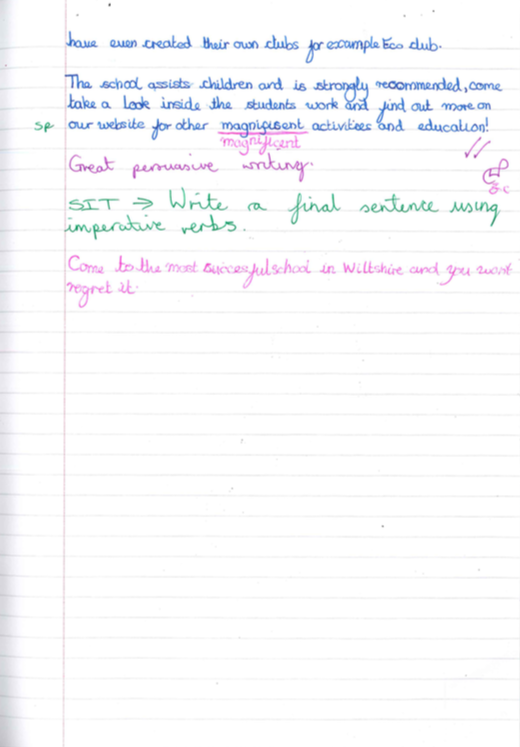 have even created their own clubs for example Eco club.
The school assists children and is strongly recommended, come
take a look inside the students work and find out more on
sp our website for other magnifisent activities and education!
magnificent
Great persuasive writing.
SIT → Write a final sentence using
imperative verbs.
Come to the most successful school in Wiltshire and you wont
regret it.